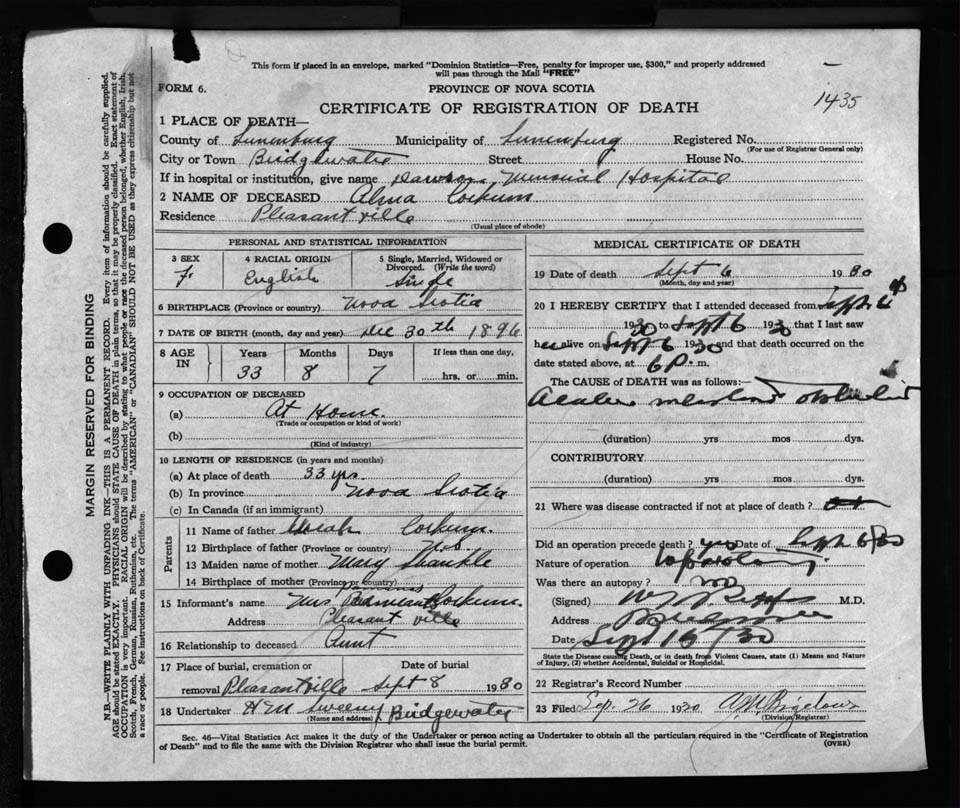 This form if placed in an envelope, marked "Dominion Statistics—Free, penalty for improper use, $300," and properly addressed
will pass through the Mail "FREE"
FORM 6.
PROVINCE OF NOVA SCOTIA
1435
CERTIFICATE OF REGISTRATION OF DEATH
1 PLACE OF DEATH—
County of Lunenburg Municipality of Lunenburg Registered No.
(For use of Registrar General only)
City or Town Bridgewater Street House No.
If in hospital or institution, give name Dawson Memorial Hospital
2 NAME OF DECEASED Alma Corkum
Residence Pleasantville
(Usual place of abode)
PERSONAL AND STATISTICAL INFORMATION
3 SEX 4 RACIAL ORIGIN 5 Single, Married, Widowed or
Divorced. (Write the word)
F English Single
6 BIRTHPLACE (Province or country) Nova Scotia
7 DATE OF BIRTH (month, day and year) Dec 30th 1896
8 AGE IN Years Months Days If less than one day,
33 8 7 hrs. or min.
9 OCCUPATION OF DECEASED
(a) At Home
(Trade or occupation or kind of work)
(b)
(Kind of industry)
10 LENGTH OF RESIDENCE (in years and months)
(a) At place of death 33 yrs
(b) In province Nova Scotia
(c) In Canada (if an immigrant)
Parents
11 Name of father Corkum
12 Birthplace of father (Province or country) N.S.
13 Maiden name of mother Mary
14 Birthplace of mother (Province or country)
15 Informant's name Mrs Corkum
Address Pleasantville
16 Relationship to deceased Aunt
17 Place of burial, cremation or Date of burial
removal Pleasantville Sept 8 1930
18 Undertaker HM Sweeny, Bridgewater
(Name and address)
MEDICAL CERTIFICATE OF DEATH
19 Date of death Sept 6 1930
(Month, day and year)
20 I HEREBY CERTIFY that I attended deceased from Sept 6
1930 to Sept 6 1930 that I last saw
her alive on Sept 6 1930 and that death occurred on the
date stated above, at 6 P. m.
The CAUSE OF DEATH was as follows:—
Acute
(duration) yrs mos dys.
CONTRIBUTORY
(duration) yrs mos dys.
21 Where was disease contracted if not at place of death?
Did an operation precede death? Date of Sept 6/30
Nature of operation
Was there an autopsy? no
(Signed) M.D.
Address
Date Sept 15/30
State the Disease causing Death, or in death from Violent Causes, state (1) Means and Nature
of Injury, (2) whether Accidental, Suicidal or Homicidal.
22 Registrar's Record Number
23 Filed Sep. 26 1930
(Division Registrar)
Sec. 46—Vital Statistics Act makes it the duty of the Undertaker or person acting as Undertaker to obtain all the particulars required in the "Certificate of Registration
of Death" and to file the same with the Division Registrar who shall issue the burial permit. (OVER)
MARGIN RESERVED FOR BINDING
N.B.—WRITE PLAINLY WITH UNFADING INK—THIS IS A PERMANENT RECORD. Every item of information should be carefully supplied.
AGE should be stated EXACTLY. PHYSICIANS should STATE CAUSE OF DEATH in plain terms, so that it may be properly classified. Exact statement of
OCCUPATION is very important. RACIAL ORIGIN will be described by stating to what people or race the deceased person belonged, whether English, Irish,
Scotch, French, German, Russian, Ruthenian, etc. The terms "AMERICAN" or "CANADIAN" SHOULD NOT BE USED as they express citizenship but not
a race or people. See instructions on back of Certificate.